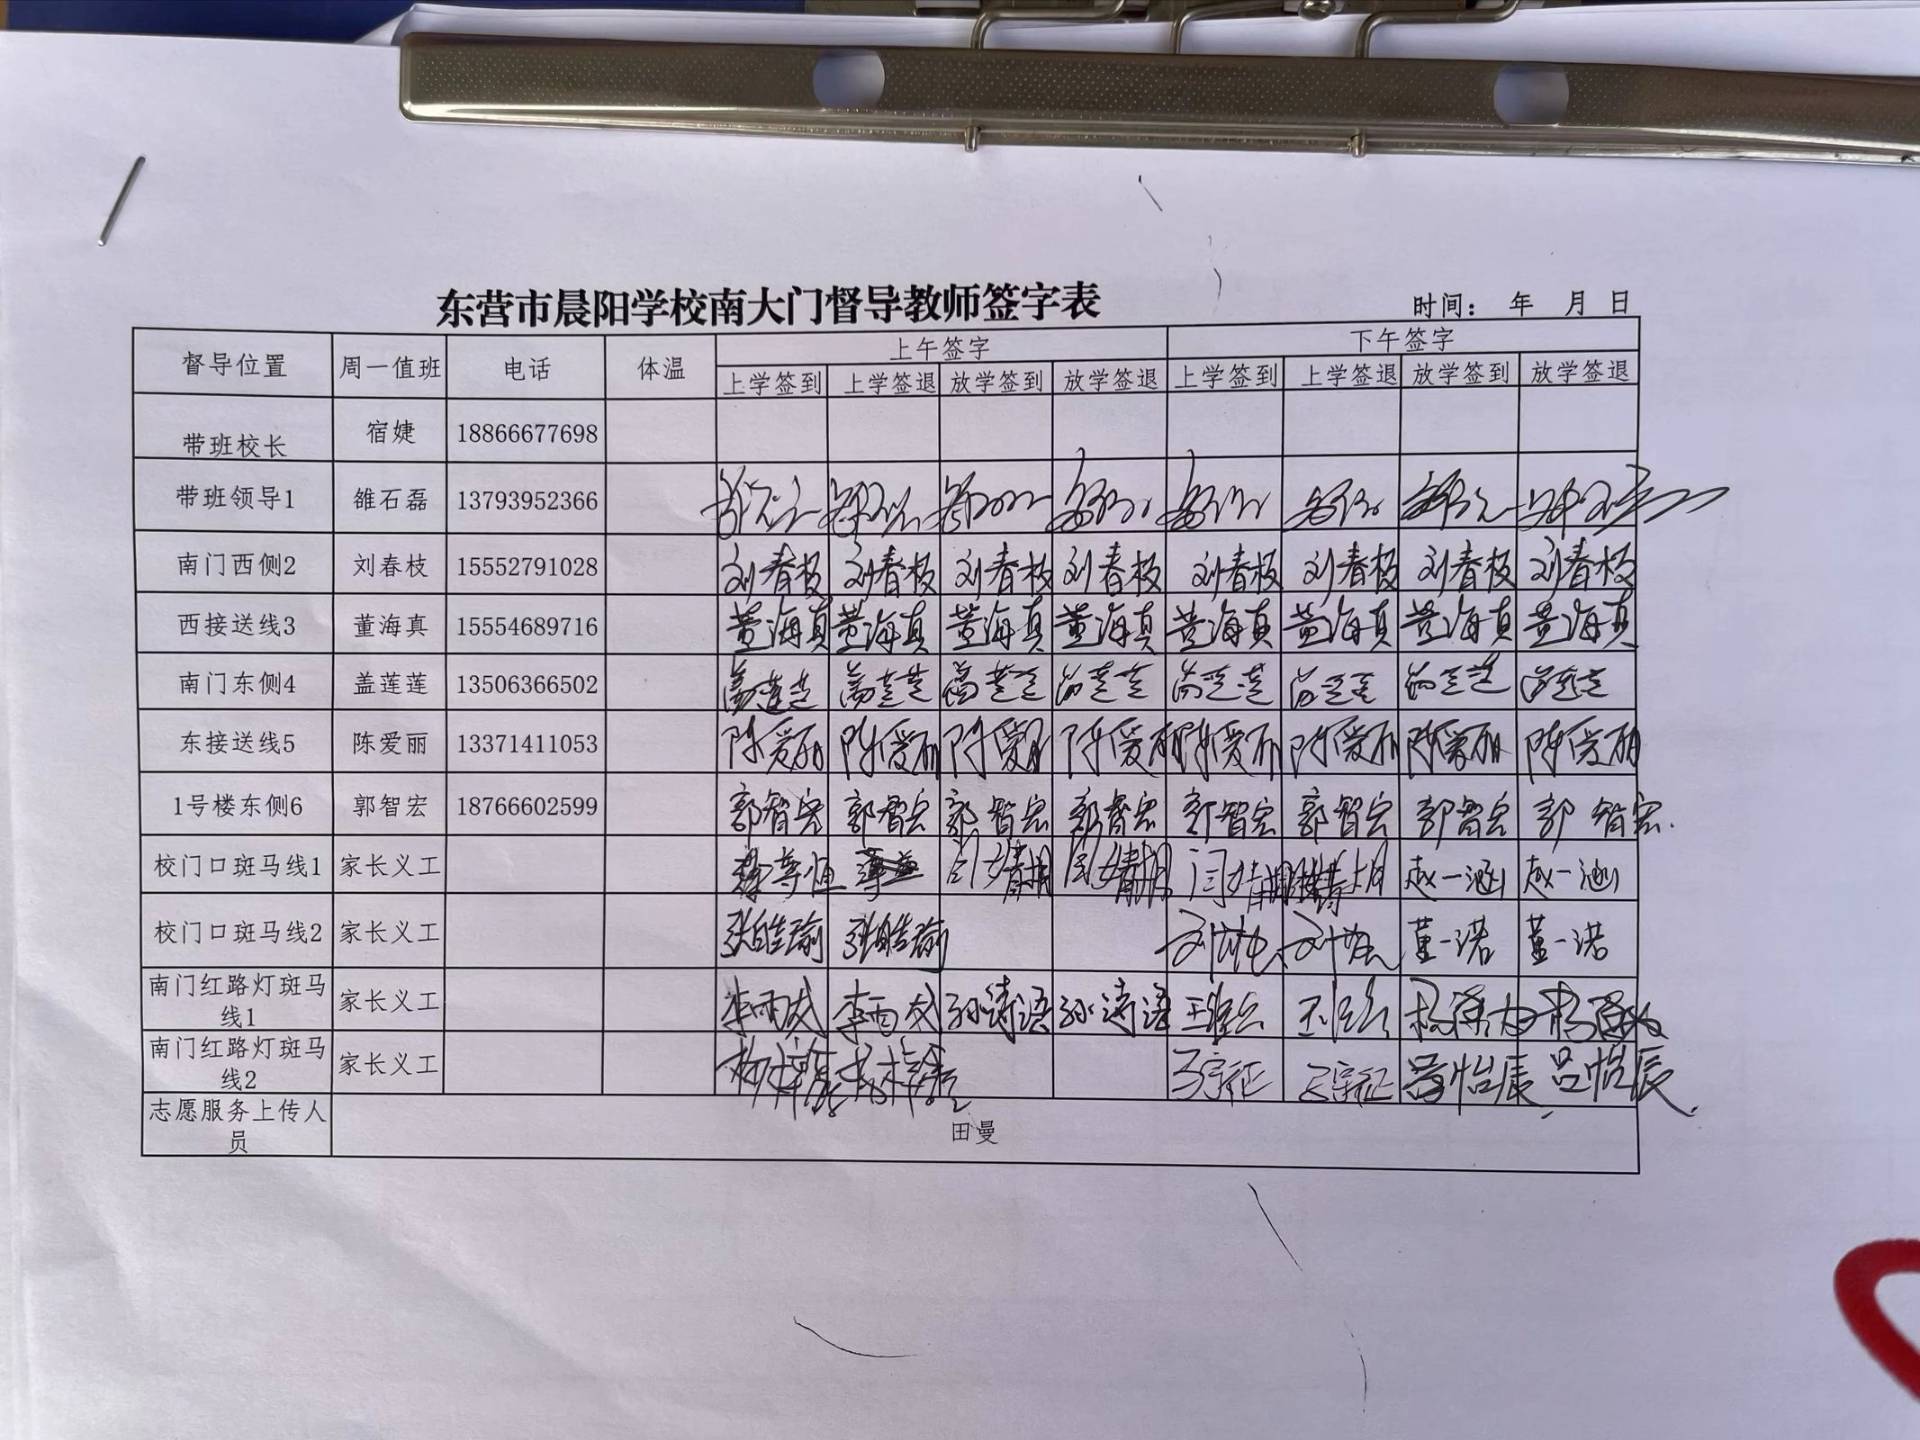 东营市晨阳学校南大门督导教师签字表 时间： 年 月 日
督导位置 周一值班 电话 体温 上午签字 下午签字
上学签到 上学签退 放学签到 放学签退 上学签到 上学签退 放学签到 放学签退
带班校长 宿婕 18866677698
带班领导1 雒石磊 13793952366
南门西侧2 刘春枝 15552791028 刘春枝 刘春枝 刘春枝 刘春枝 刘春枝 刘春枝 刘春枝 刘春枝
西接送线3 董海真 15554689716 董海真 董海真 董海真 董海真 董海真 董海真 董海真 董海真
南门东侧4 盖莲莲 13506366502 盖莲莲 盖莲莲 盖莲莲 盖莲莲 盖莲莲 盖莲莲 盖莲莲 盖莲莲
东接送线5 陈爱丽 13371411053 陈爱丽 陈爱丽 陈爱丽 陈爱丽 陈爱丽 陈爱丽 陈爱丽 陈爱丽
1号楼东侧6 郭智宏 18766602599 郭智宏 郭智宏 郭智宏 郭智宏 郭智宏 郭智宏 郭智宏 郭智宏
校门口斑马线1 家长义工 赵一涵 赵一涵
校门口斑马线2 家长义工 张皓瑜 张皓瑜 董一诺 董一诺
南门红路灯斑马线1 家长义工 李雨成 李雨成 孙诗语 孙诗语
南门红路灯斑马线2 家长义工 马宇征 马宇征 吕怡辰 吕怡辰
志愿服务上传人员 田曼